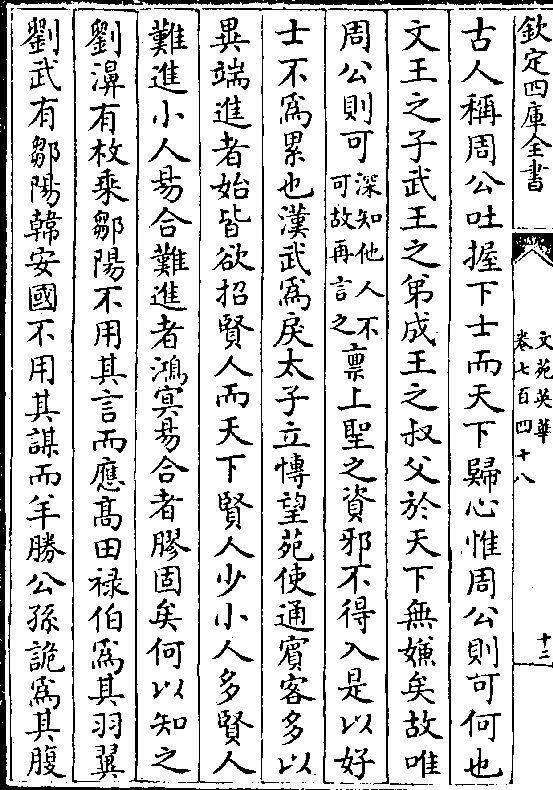 欽定四庫全書
文苑英華
卷七百四十八
十二
古人稱周公吐握下士而天下歸心惟周公則可何也
文王之子武王之弟成王之叔父於天下無嫌矣故唯
周公則可深知他人不可故再言之禀上聖之資邪不得入是以好
士不為累也漢武為戾太子立博望苑使通賓客多以
異端進者始皆欲招賢人而天下賢人少小人多賢人
難進小人易合難進者鴻冥易合者膠固矣何以知之
劉濞有枚乗鄒陽不用其言而應髙田禄伯為其羽翼
劉武有鄒陽韓安國不用其謀而羊勝公孫詭為其腹